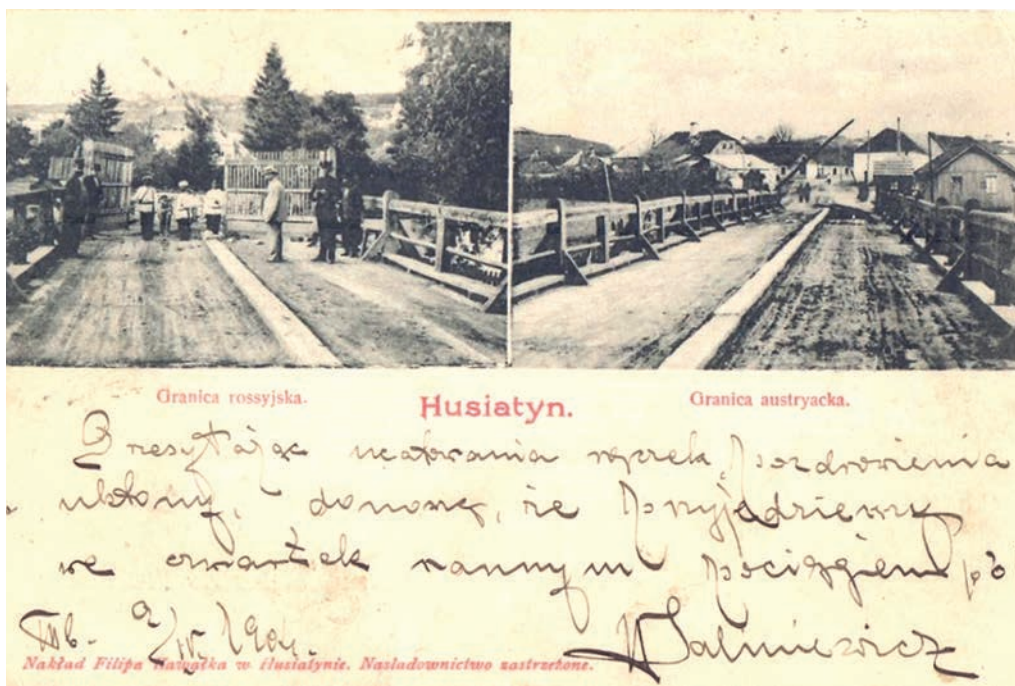 Granica rossyjska.
Husiatyn.
Granica austryacka.
Przesyłając ucałowania rączek, pozdrowienia
ukłony, donoszę, że przyjedziemy
we czwartek rannym pociągiem
9/IV. 190
Nakład Filipa Nawałka w Husiatynie. Nasladownictwo zastrzeżone.